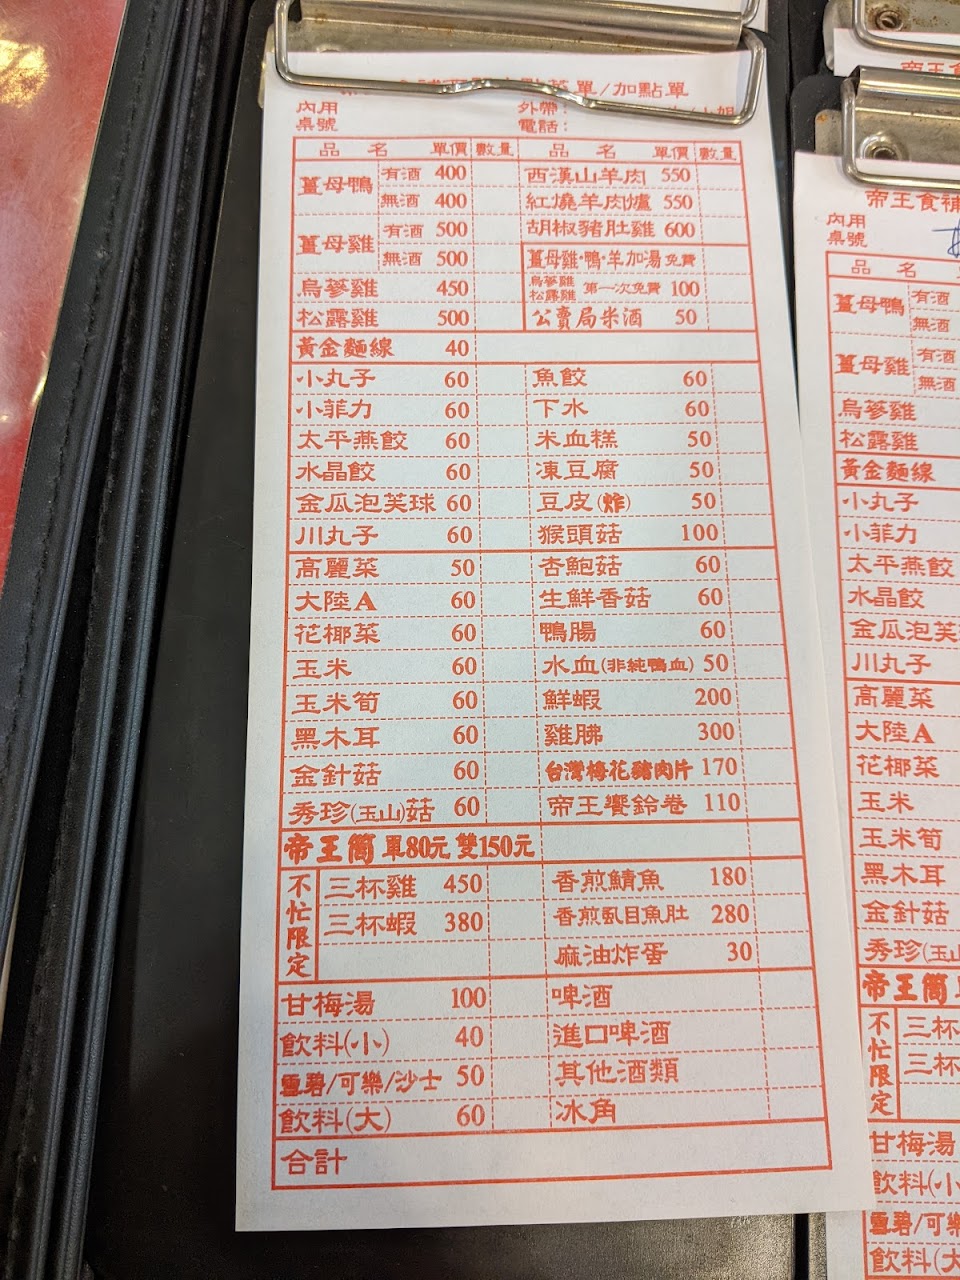 點菜單/加點單
內用 外帶：
桌號 電話：
品名 單價 數量 品名 單價 數量
薑母鴨 有酒 400 西漢山羊肉 550
無酒 400 紅燒羊肉爐 550
薑母雞 有酒 500 胡椒豬肚雞 600
無酒 500 薑母雞·鴨·羊加湯免費
烏蔘雞 450 烏蔘雞 松露雞 第一次免費 100
松露雞 500 公賣局米酒 50
黃金麵線 40
小丸子 60 魚餃 60
小菲力 60 下水 60
太平燕餃 60 米血糕 50
水晶餃 60 凍豆腐 50
金瓜泡芙球 60 豆皮(炸) 50
川丸子 60 猴頭菇 100
高麗菜 50 杏鮑菇 60
大陸A 60 生鮮香菇 60
花椰菜 60 鴨腸 60
玉米 60 水血(非純鴨血) 50
玉米筍 60 鮮蝦 200
黑木耳 60 雞胇 300
金針菇 60 台灣梅花豬肉片 170
秀珍(玉山)菇 60 帝王饗鈴卷 110
帝王筒 單80元 雙150元
不忙限定
三杯雞 450 香煎鯖魚 180
三杯蝦 380 香煎虱目魚肚 280
麻油炸蛋 30
甘梅湯 100 啤酒
飲料(小) 40 進口啤酒
雪碧/可樂/沙士 50 其他酒類
飲料(大) 60 冰角
合計
帝王食補
內用
桌號
品名
薑母鴨 有酒
無酒
薑母雞 有酒
無酒
烏蔘雞
松露雞
黃金麵線
小丸子
小菲力
太平燕餃
水晶餃
金瓜泡芙
川丸子
高麗菜
大陸A
花椰菜
玉米
玉米筍
黑木耳
金針菇
秀珍(玉山
帝王筒
不忙限定
三杯
三杯
甘梅湯
飲料(小
雪碧/可樂
飲料(大